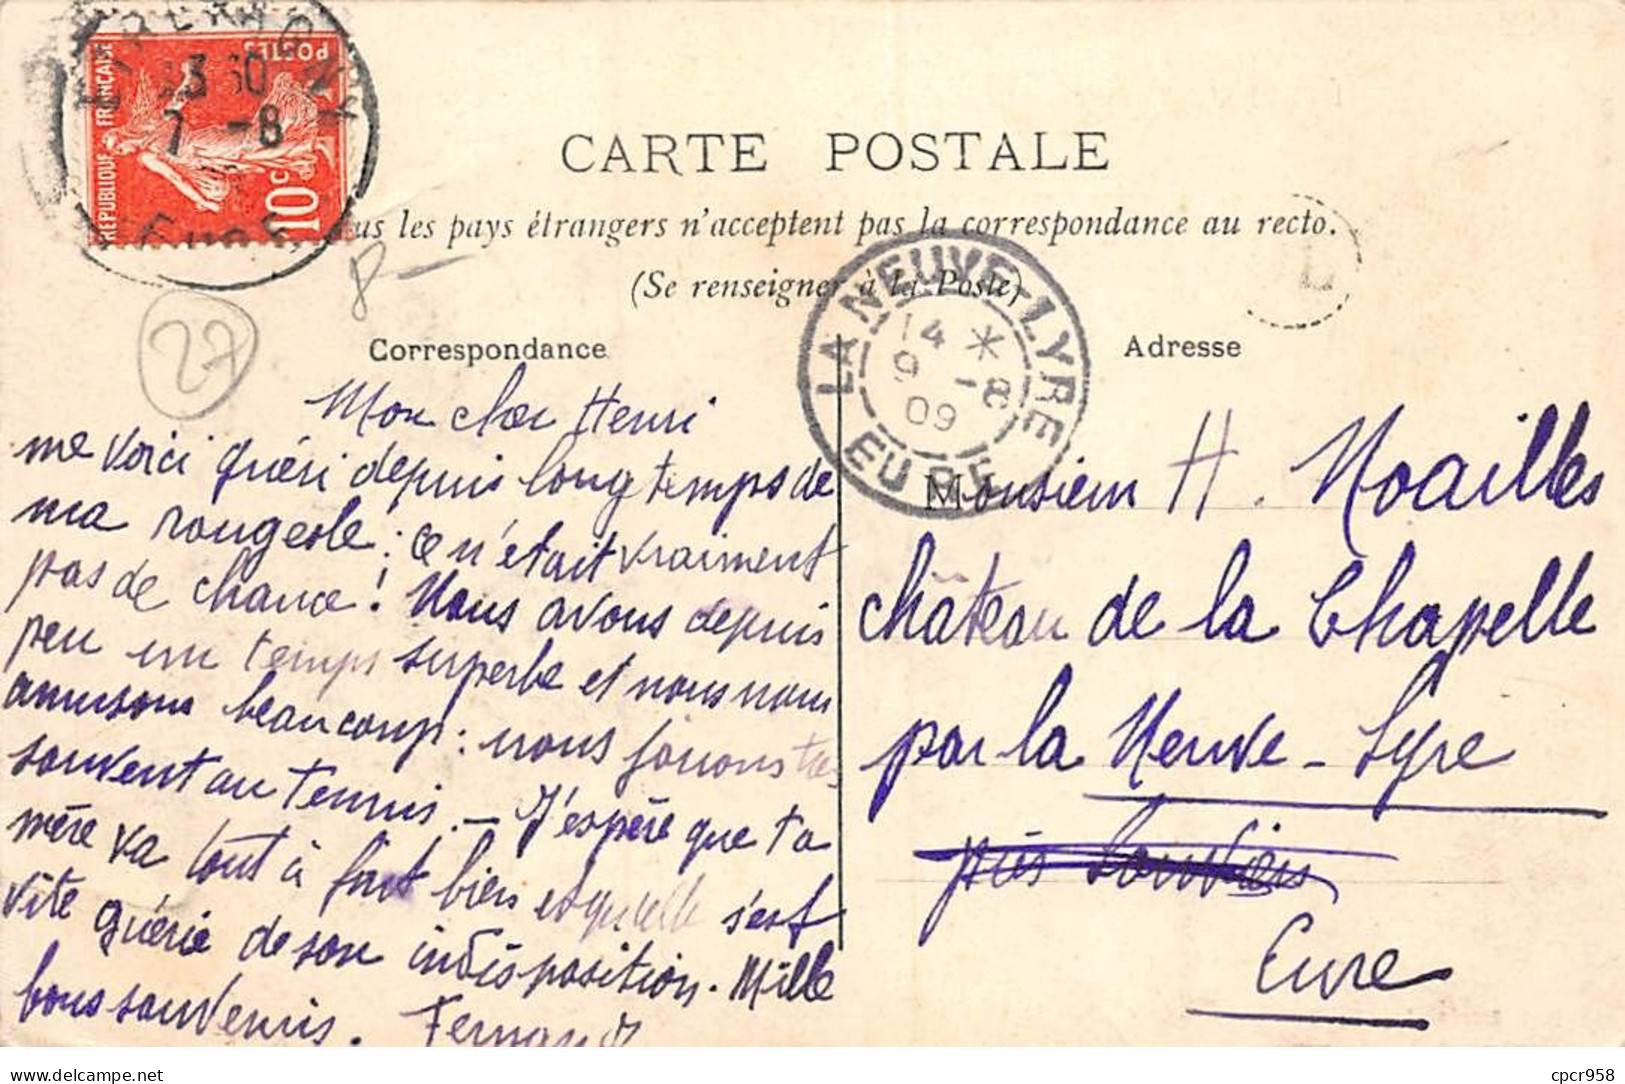 RÉPUBLIQUE FRANÇAISE
POSTES
10 c
7 -8
Eure
CARTE POSTALE
us les pays étrangers n'acceptent pas la correspondance au recto.
(Se renseigner à la Poste)
LA NEUVE-LYRE
14 *
9 -8
09
EURE
L
27
Correspondance
Mon cher Henri
me voici guéri depuis longtemps de
ma rougeole ; ce n'était vraiment
pas de chance ! Nous avons depuis
peu un temps superbe et nous nous
amusons beaucoup : nous jouons très
souvent au tennis. — J'espère que ta
mère va tout à fait bien et qu'elle s'est
vite guérie de son indisposition. Mille
bons souvenirs. Fernand
Adresse
Monsieur H. Noailles
château de la Chapelle
par la Neuve-Lyre
près
Eure
delcampe.net
cpcr958